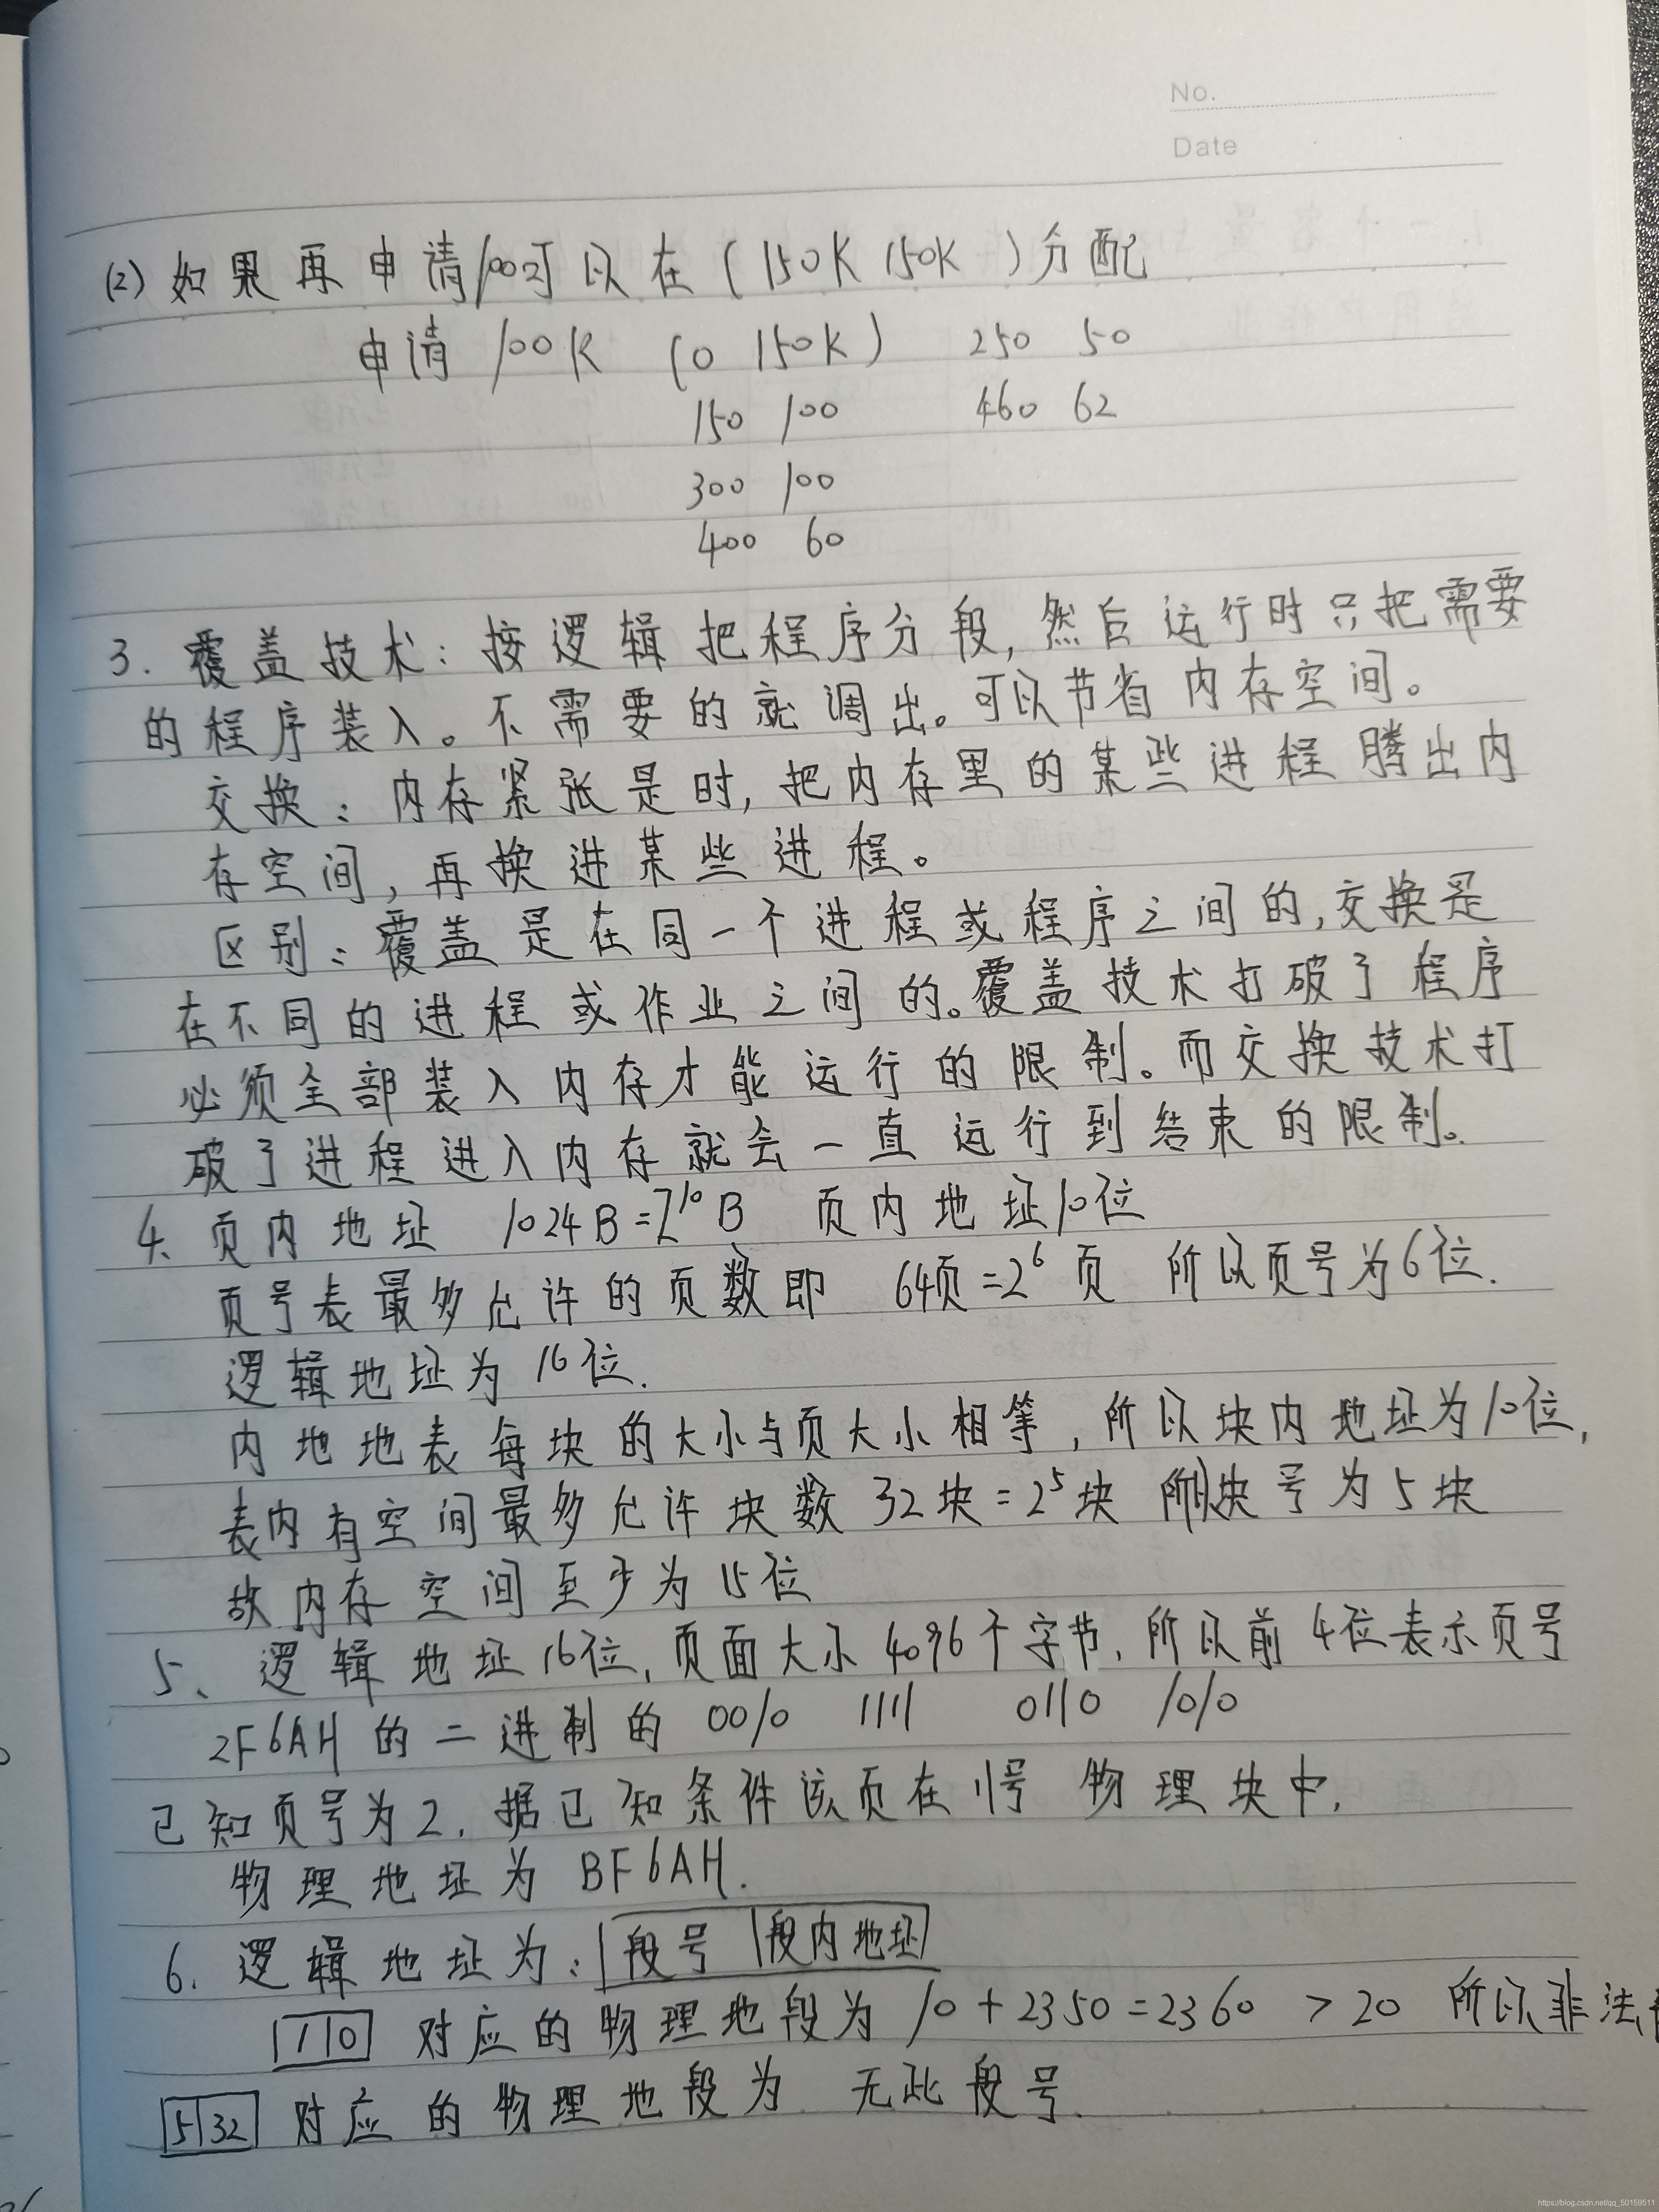 No.
Date
(2) 如果再申请100可以在(150K 150K)分配
申请 100K (0 150K) 250 50
150 100 460 62
300 100
400 60
3. 覆盖技术:按逻辑把程序分段,然后运行时只把需要
的程序装入。不需要的就调出。可以节省内存空间。
交换:内存紧张是时,把内存里的某些进程腾出内
存空间,再换进某些进程。
区别:覆盖是在同一个进程或程序之间的,交换是
在不同的进程或作业之间的。覆盖技术打破了程序
必须全部装入内存才能运行的限制。而交换技术打
破了进程进入内存就会一直运行到结束的限制。
4、页内地址 1024B=2¹⁰B 页内地址10位
页号表最多允许的页数即 64页=2⁶页 所以页号为6位.
逻辑地址为16位.
内地地表每块的大小与页大小相等,所以块内地址为10位,
表内有空间最多允许块数32块=2⁵块 所以块号为5块
故内存空间至少为15位
5、逻辑地址16位,页面大小4096个字节,所以前4位表示页号
2F6AH的二进制的 0010 1111 0110 1010
已知页号为2.据已知条件该页在11号物理块中.
物理地址为BF6AH.
6. 逻辑地址为:段号 段内地址
1 10 对应的物理地段为 10+2350=2360 >20 所以非法
5 32 对应的物理地段为 无此段号.
https://blog.csdn.net/qq_50159511